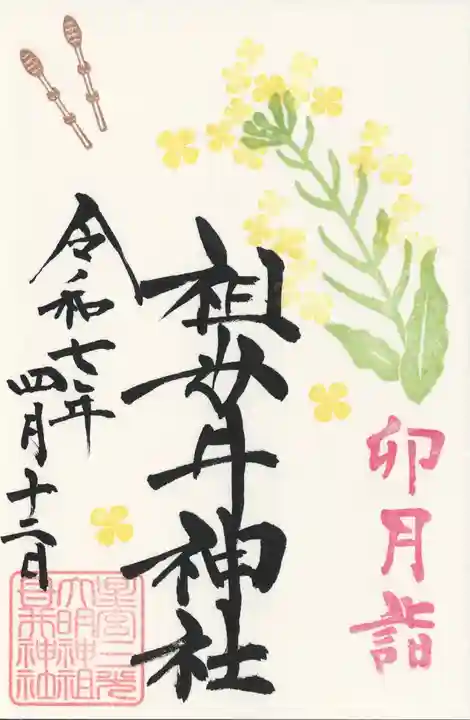 卯月詣
祖母井神社
令和七年
四月十二日
星宮
大明神祖
母井神社